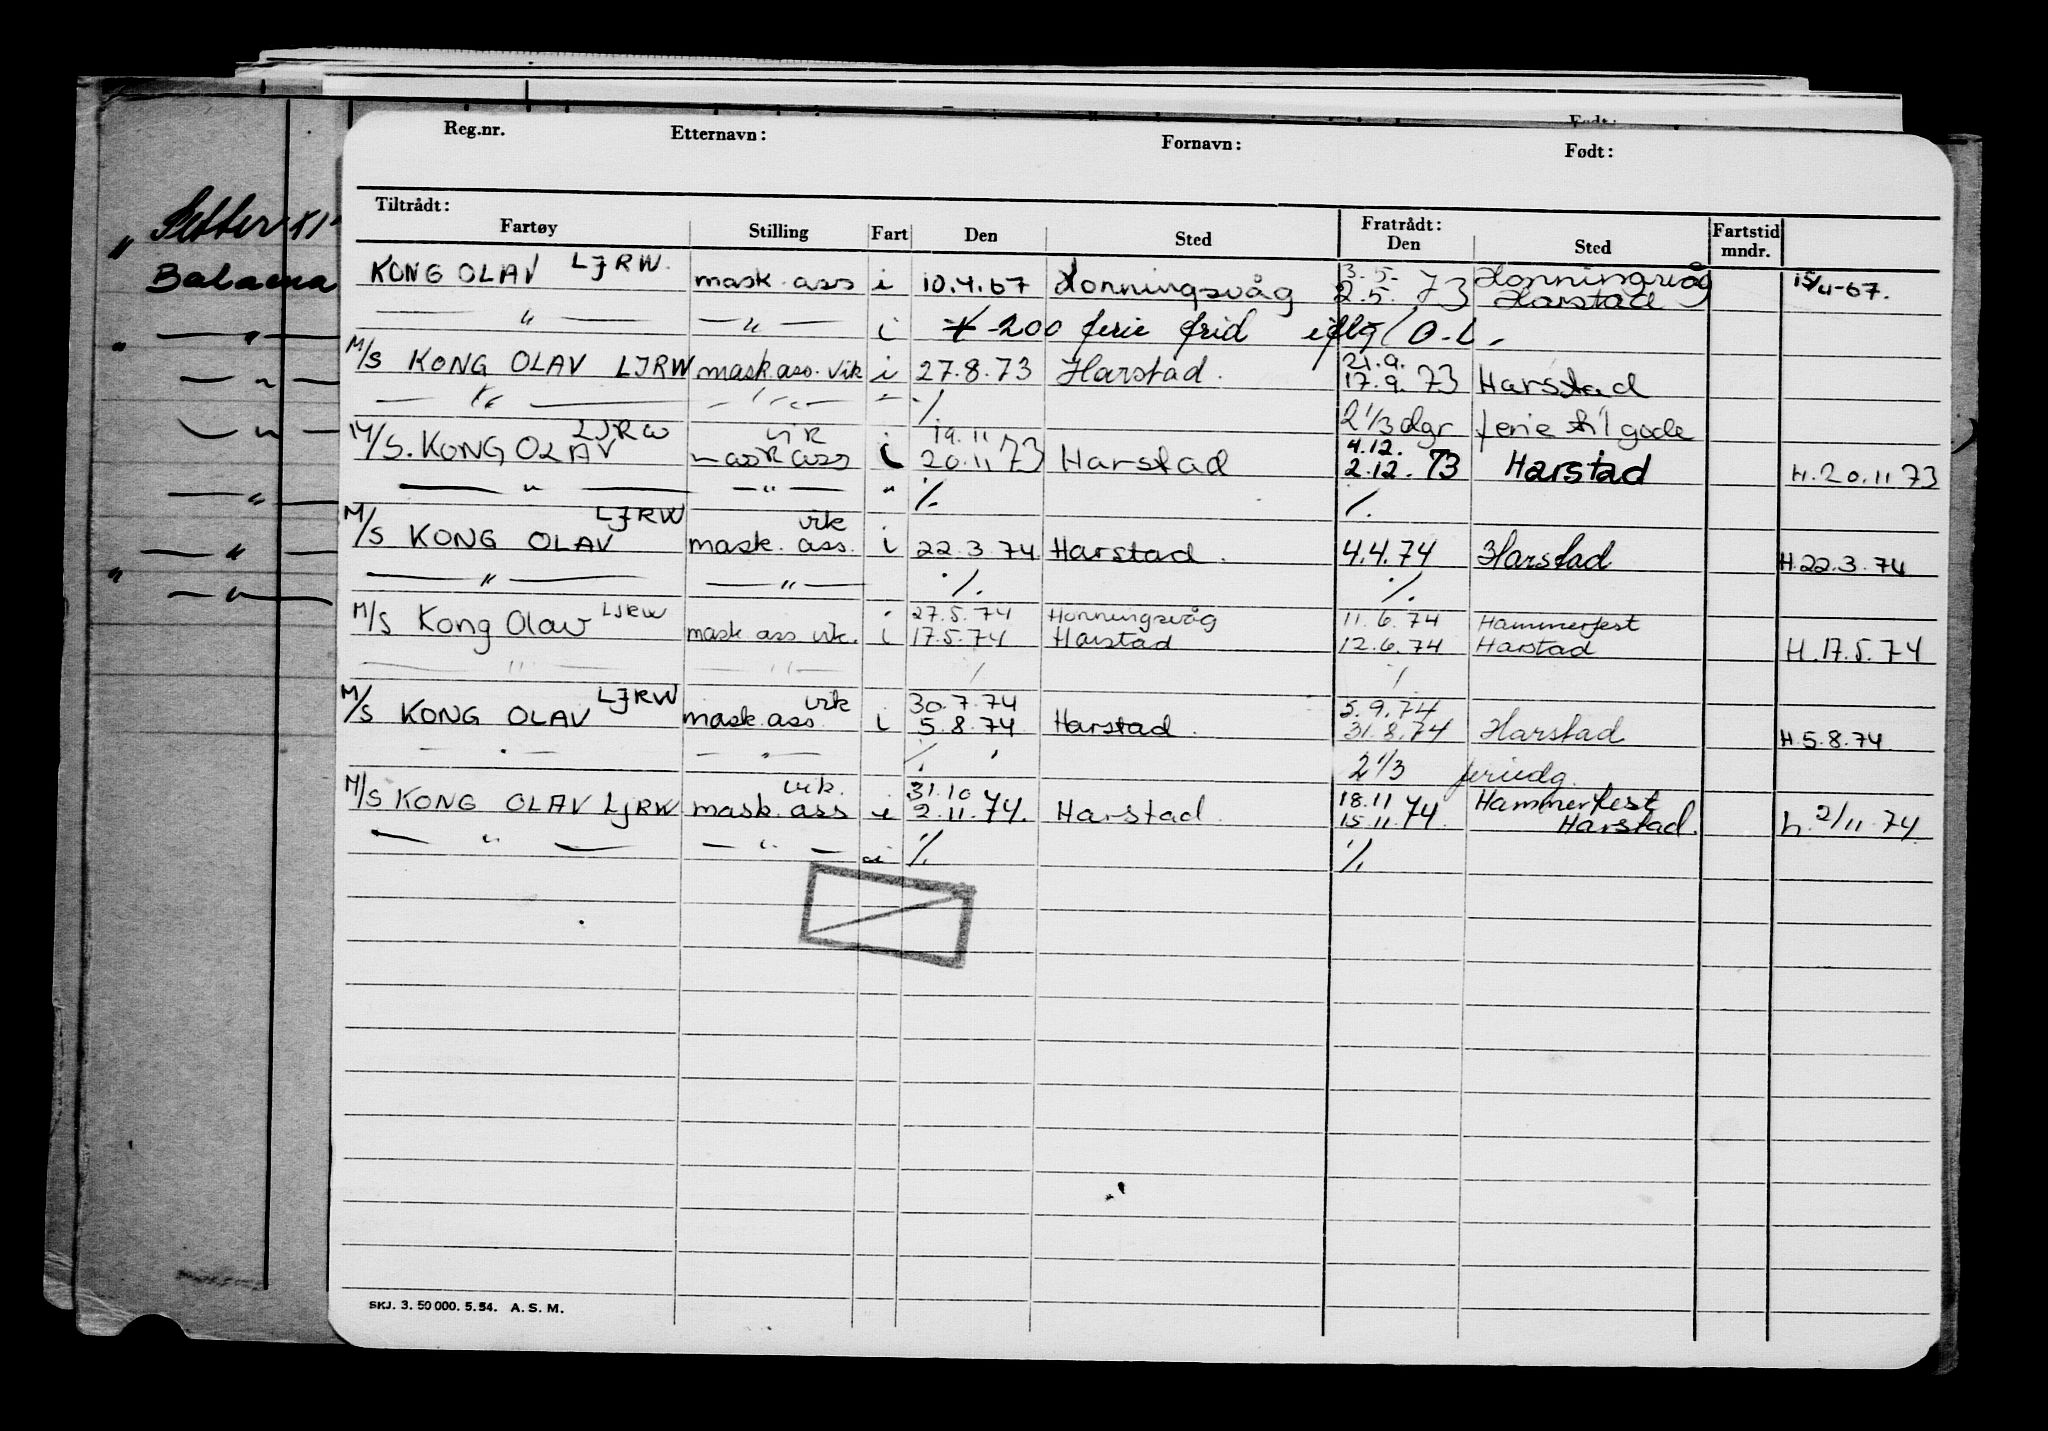 Født:
Reg.nr. Etternavn: Fornavn: Født:
Tiltrådt: Fratrådt:
Fartøy Stilling Fart Den Sted Den Sted Fartstid mndr.
"Setter XI"
Balaena
KONG OLAV LJRW. mask. ass i 10.4.67 Honningsvåg 3.5. Honningsvåg 15/4-67.
2.5. 73 Harstad
— " — — " — i + 200 ferie frid iflg O.L.
M/S KONG OLAV LJRW mask ass. vik i 27.8.73 Harstad. 21.9.
17.9.73 Harstad
— " — — " — " /. 2 1/3 dgr ferie til gode
LJRW vik 19.11 4.12.
M/S. KONG OLAV mask ass i 20.11 73 Harstad 2.12.73 Harstad H.20.11 73
— " — — " — " /. /.
LJRW vik
M/S KONG OLAV mask. ass. i 22.3.74 Harstad. 4.4.74 Harstad H.22.3.74
— " — — " — ./. ./.
LJRW i 27.5.74 Honningsvåg 11.6.74 Hammerfest
M/S Kong Olav mask ass vik. i 17.5.74 Harstad 12.6.74 Harstad H.17.5.74
— " — — " — / /
LJRW vik 30.7.74 5.9.74
M/S KONG OLAV mask. ass. i 5.8.74 Harstad. 31.8.74 Harstad H.5.8.74
— " — — " — /. 2 1/3 feriedg.
vik. 31.10 18.11 Hammerfest
M/S KONG OLAV LJRW mask. ass i 2.11.74. Harstad. 15.11.74. Harstad. h. 2/11.74
— " — — " — i /. /.
SKJ. 3. 50 000. 5. 54. A. S. M.